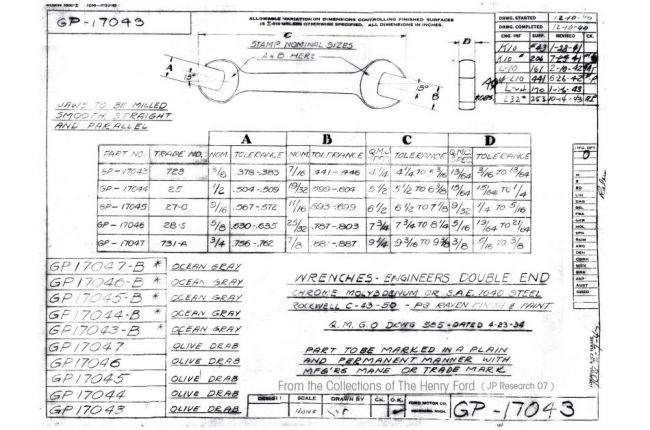 GP-17043
ALLOWABLE VARIATION ON DIMENSIONS CONTROLLING FINISHED SURFACES
IS ±.010 UNLESS OTHERWISE SPECIFIED. ALL DIMENSIONS IN INCHES.
DRWG. STARTED 12-10-40
DRWG. COMPLETED 12-10-40
ENG. INF SUFF. REVISED CK.
K10 1-28-41
K10 206 7-25-41
L-10 161 2-10-42
L10 441 6-26-42
170 1-26-43
L32 253 10-14-43
C
STAMP NOMINAL SIZES
A & B HERE
D
A
15°
15°
B
JAWS TO BE MILLED
SMOOTH, STRAIGHT
AND PARALLEL
A B C D
PART NO. TRADE NO. NOM. TOLERANCE NOM. TOLERANCE Q.M.C. TOLERANCE Q.M.C. TOLERANCE
GP-17043 723 3/8 .378-.383 7/16 .441-.446 4 1/4 4 1/4 TO 5 3/16 13/64 3/16 TO 13/64
GP-17044 25 1/2 .504-.509 19/32 .599-.604 5 1/2 5 1/2 TO 6 7/8 15/64 15/64 TO 1/4
GP-17045 27-C 9/16 .567-.572 11/16 .693-.699 6 1/2 6 1/2 TO 7 7/8 9/32 1/4 TO 5/16
GP-17046 28-S 5/8 .630-.635 25/32 .787-.803 7 3/4 7 3/4 TO 8 1/4 5/16 19/64 TO 21/64
GP-17047 731-A 3/4 .756-.762 7/8 .881-.887 9 1/4 9 3/16 TO 9 3/8 3/8 5/16 TO 3/8
GP17047-B * OCEAN GRAY
GP17046-B * OCEAN GRAY
GP17045-B * OCEAN GRAY
GP17044-B * OCEAN GRAY
GP17043-B * OCEAN GRAY
GP17047 OLIVE DRAB
GP17046 OLIVE DRAB
GP17045 OLIVE DRAB
GP17044 OLIVE DRAB
GP17043 OLIVE DRAB
WRENCHES-ENGINEERS DOUBLE END
CHROME MOLYBDENUM OR S.A.E. 1040 STEEL
ROCKWELL C-43-50 - P3 RAVEN FINISH & PAINT
Q.M.G.O DRWG 585-DATED 4-23-34
PART TO BE MARKED IN A PLAIN
AND PERMANENT MANNER WITH
MFG'RS MANE OR TRADE MARK
From the Collections of The Henry Ford ( JP Research 07 )
DESIGN SCALE DRAWN BY CK. O.K.
NONE
FORD MOTOR CO.
GP-17043